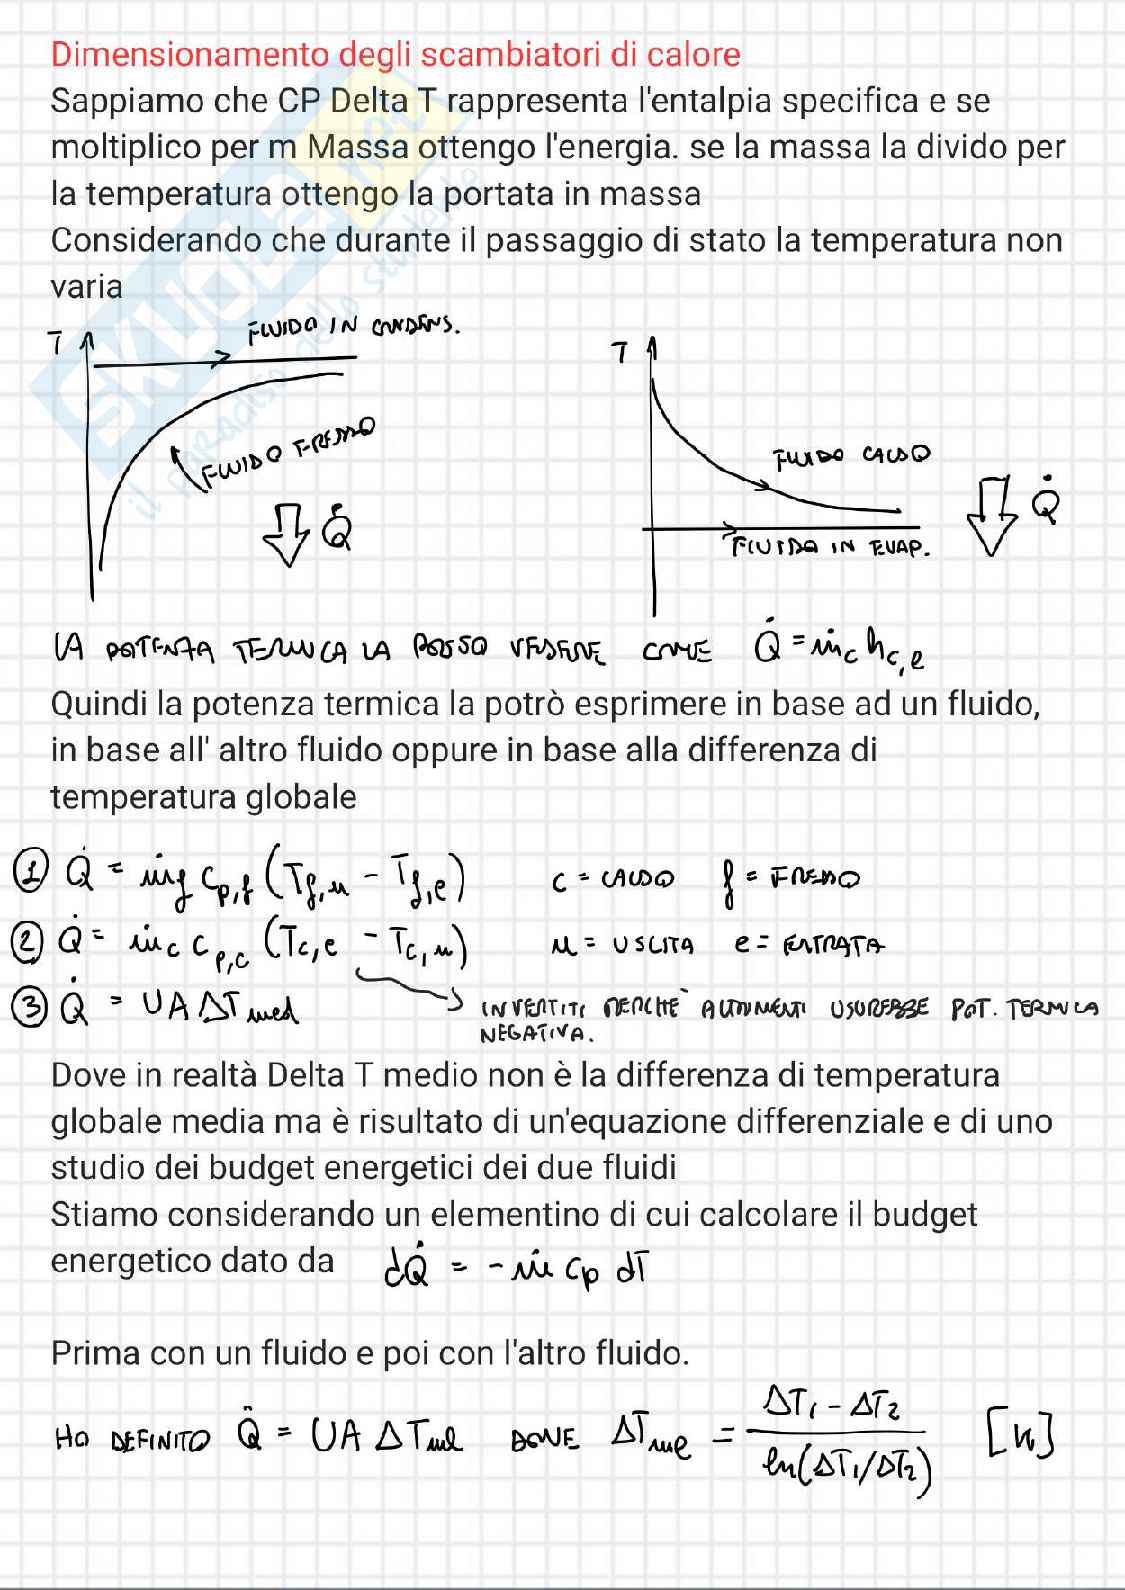 Dimensionamento degli scambiatori di calore
Sappiamo che CP Delta T rappresenta l'entalpia specifica e se
moltiplico per m Massa ottengo l'energia. se la massa la divido per
la temperatura ottengo la portata in massa
Considerando che durante il passaggio di stato la temperatura non
varia
T FLUIDO IN CONDENS.
FLUIDO FREDDO
Q̇
T
FLUIDO CALDO
FLUIDO IN EVAP.
Q̇
SKUOLA.NET
il paradiso dello studente
LA POTENZA TERMICA LA POSSO VEDERE COME Q̇ = ṁc hc,e
Quindi la potenza termica la potrò esprimere in base ad un fluido,
in base all' altro fluido oppure in base alla differenza di
temperatura globale
① Q̇ = ṁf cp,f (Tf,u - Tf,e) c = CALDO f = FREDDO
② Q̇ = ṁc cp,c (Tc,e - Tc,u) u = USCITA e = ENTRATA
③ Q̇ = UA ΔTmed INVERTITI PERCHÈ ALTRIMENTI USCIREBBE POT. TERMICA
NEGATIVA.
Dove in realtà Delta T medio non è la differenza di temperatura
globale media ma è risultato di un'equazione differenziale e di uno
studio dei budget energetici dei due fluidi
Stiamo considerando un elementino di cui calcolare il budget
energetico dato da dQ̇ = - ṁ cp dT
Prima con un fluido e poi con l'altro fluido.
HO DEFINITO Q̇ = UA ΔTml DOVE ΔTml = (ΔT1 - ΔT2) / ln(ΔT1/ΔT2) [K]